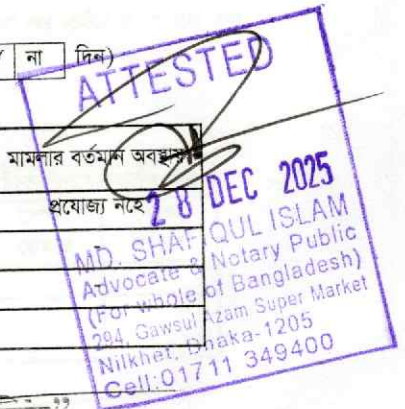 না দিন)
ATTESTED
মামলার বর্তমান অবস্থা
প্রযোজ্য নহে
28 DEC 2025
MD. SHAFIQUL ISLAM
Advocate & Notary Public
(For whole of Bangladesh)
294, Gawsul Azam Super Market
Nilkhet, Dhaka-1205
Cell:01711 349400